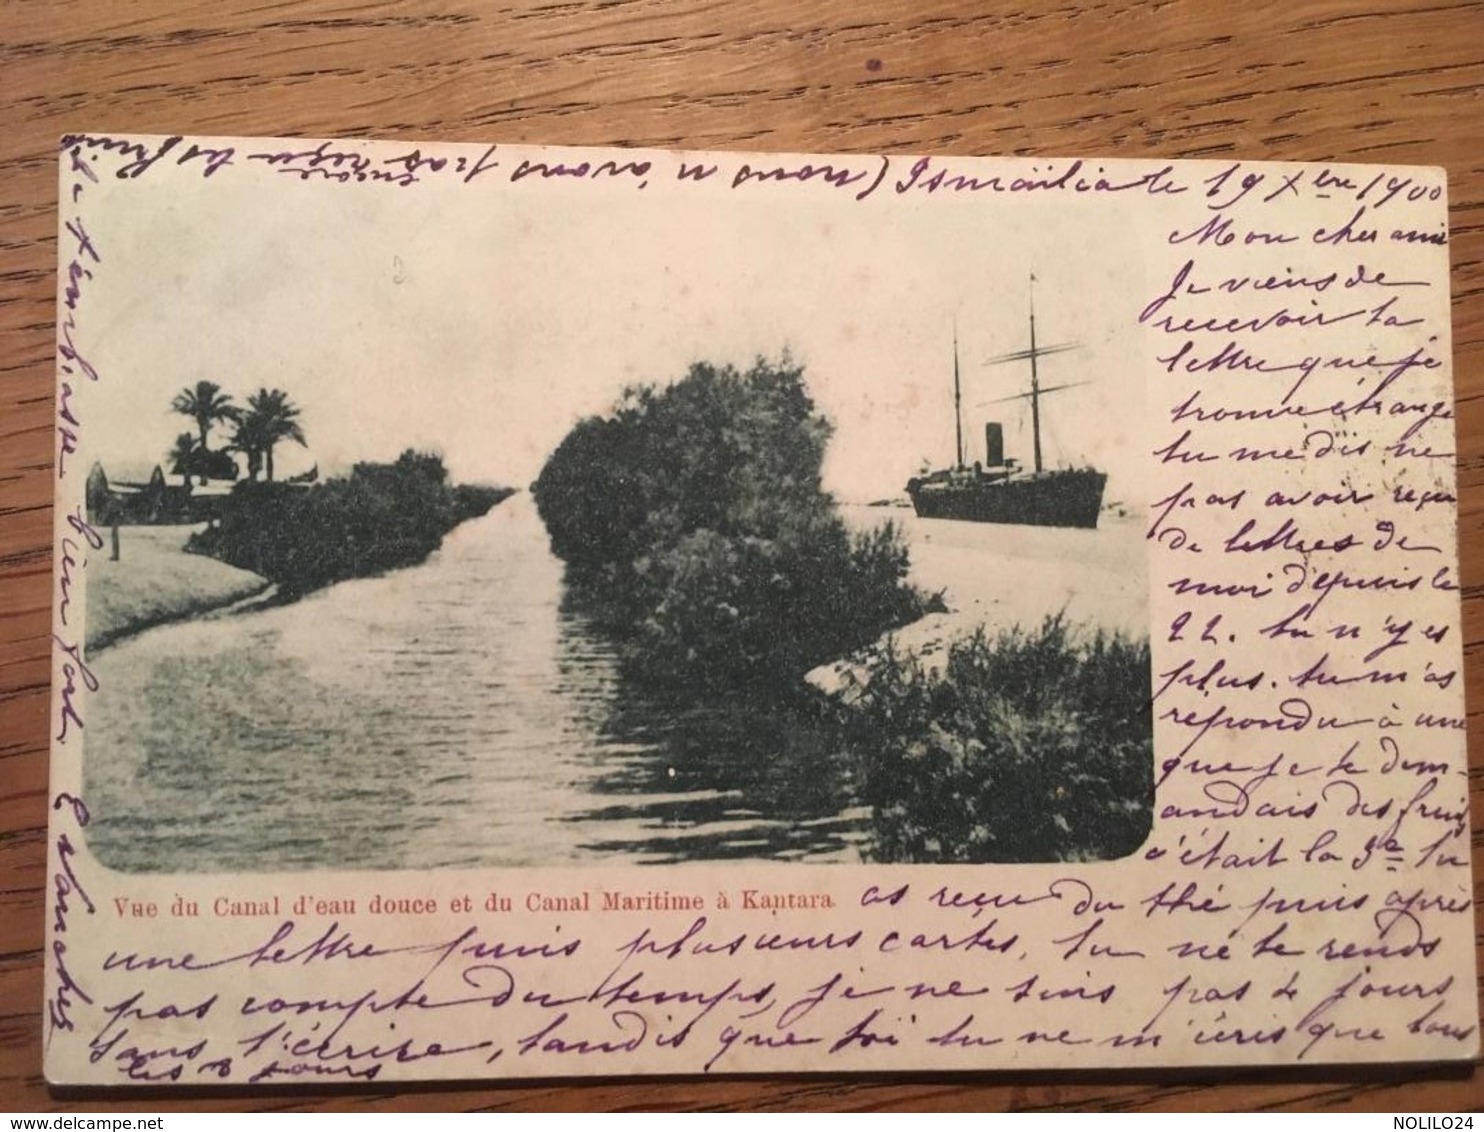 Ismaïlia le 19 Xbre 1900
Mon cher ami
Je viens de
recevoir ta
lettre que je
trouve étrange
tu me dis ne
pas avoir reçu
de lettres de
moi depuis le
22. tu n'y es
plus. tu m'as
répondu à une
que je te dem-
andais des fruits
c'était la 3e tu
Vue du Canal d'eau douce et du Canal Maritime à Kantara.
as reçu du thé puis après
une lettre puis plusieurs cartes, tu ne te rends
pas compte du temps, je ne suis pas 4 jours
sans t'écrire, tandis que toi tu ne m'écris que tous
les 8 jours
(nous n'avons pas encore reçu les fruits
Je t'embrasse bien fort.
NOLILO24